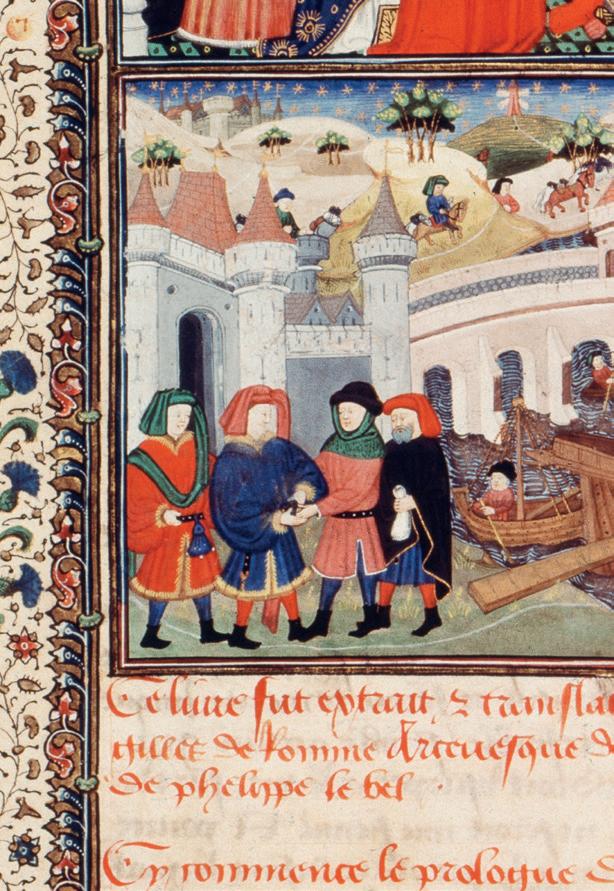 Ce livre fut extrait & transla
gilles de Romme Arcevesque d
de phelippe le bel .
Cy commence le prologue d